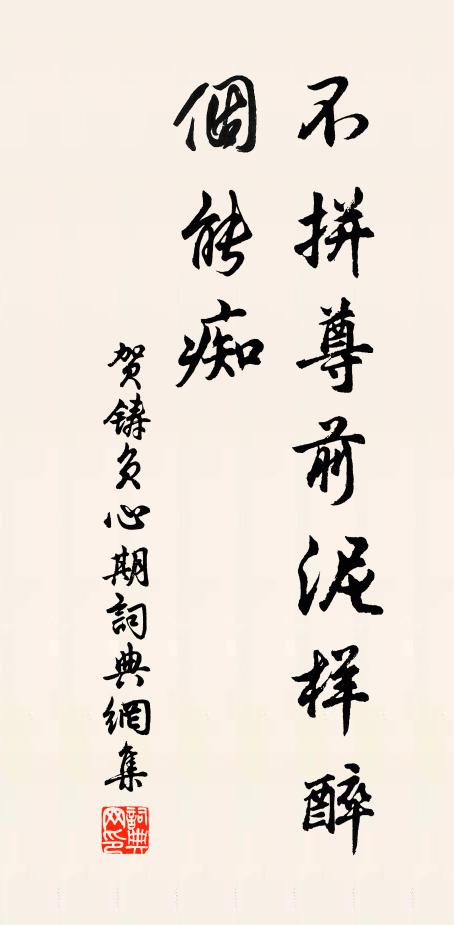 不拼尊前泥样醉
個能痴
贺鑄负心期詞典網集
詞典网印